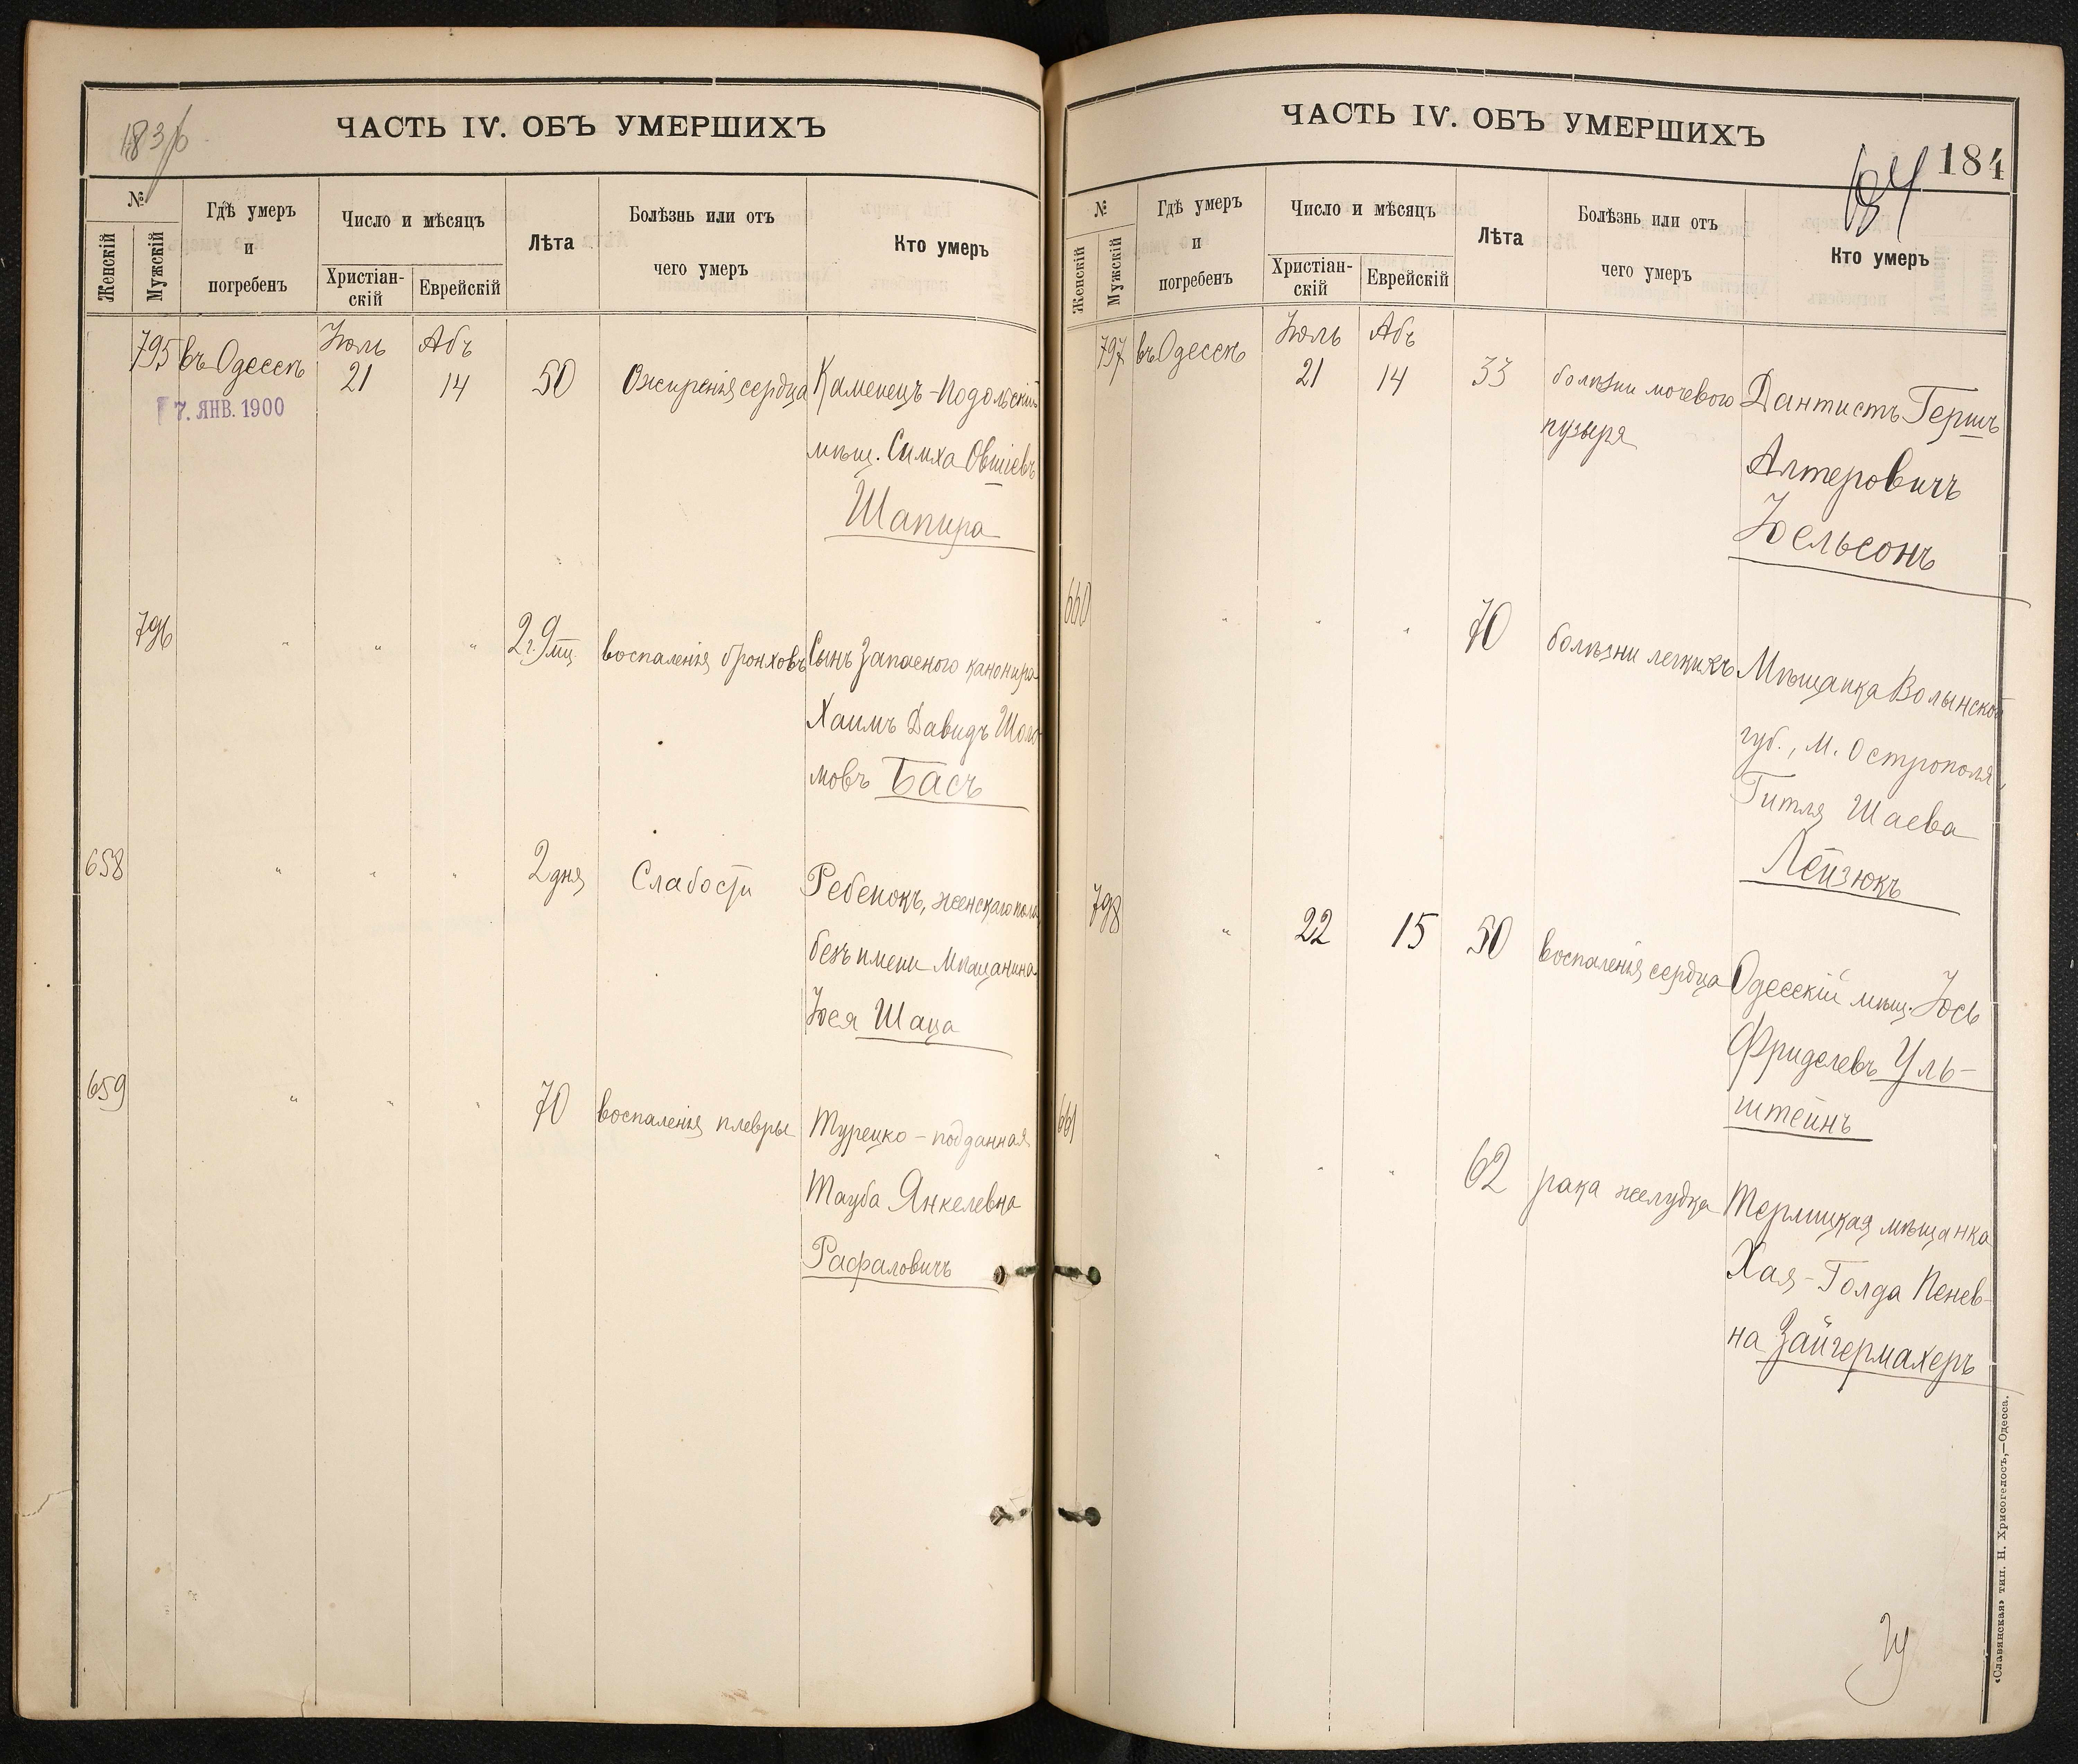 183/б
ЧАСТЬ IV. ОБЪ УМЕРШИХЪ
№
Женскій
Мужскій
Гдѣ умеръ
и
погребенъ
Число и мѣсяцъ
Христіан-
скій
Еврейскій
Лѣта
Болѣзнь или отъ
чего умеръ
Кто умеръ
795 въ Одессѣ Іюль 21 Абъ 14 50 Ожирѣнія сердца Каменецъ-Подольскій
7. ЯНВ. 1900
мѣщ. Симха Овшіевъ
Шапира
796 " " " 2 г. 9 мц. воспаленія бронховъ Сынъ запасного канонира
Хаимъ Давидъ Шоло
мовъ Басъ
658 " " " 2 дня Слабости Ребенокъ, женскаго пола
безъ имени мѣщанина
Іося Шаца
659 " " " 70 воспаленія плевры Турецко-подданная
Тауба Янкелевна
Рафаловичъ
ЧАСТЬ IV. ОБЪ УМЕРШИХЪ
184
№
Женскій
Мужскій
Гдѣ умеръ
и
погребенъ
Число и мѣсяцъ
Христіан-
скій
Еврейскій
Лѣта
Болѣзнь или отъ
чего умеръ
Кто умеръ
797 въ Одессѣ Іюль 21 Абъ 14 33 болѣзни мочевого Дантистъ Гершъ
пузыря
Алтеровичъ
Іоельсонъ
660 " " " 70 болѣзни легкихъ Мѣщанка Волынской
губ., м. Острополя,
Гитля Шаева
Лейзюкъ
798 " 22 15 50 воспаленія сердца Одесскій мѣщ. Іось
Фриделевъ Уль-
штейнъ
661 " " " 62 рака желудка Терлицкая мѣщанка
Хая-Голда Пенев-
на Зайгермахеръ
«Славянская» тип. Н. Хрисогелосъ,—Одесса.